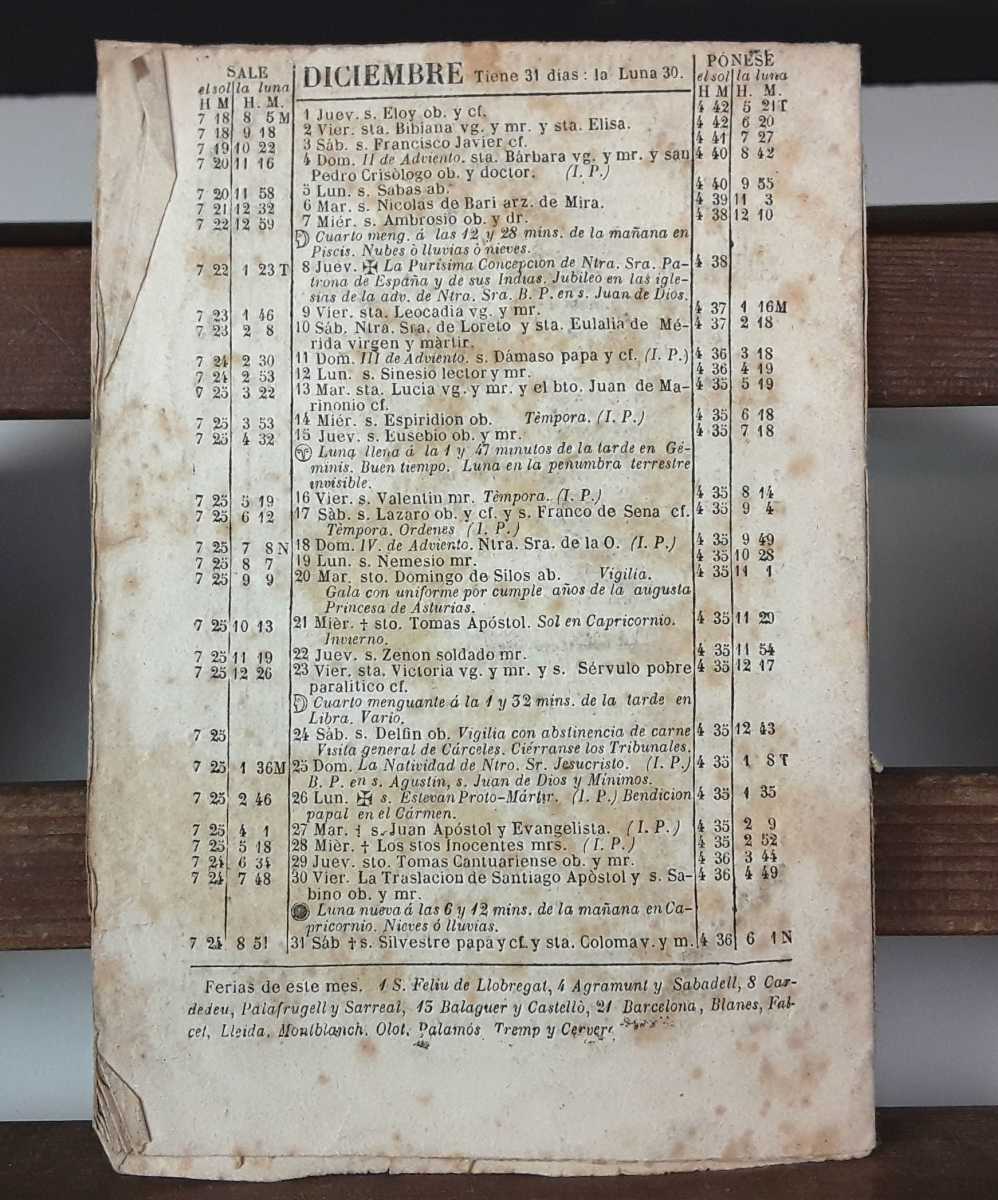 SALE DICIEMBRE Tiene 31 dias: la Luna 30. PÓNESE
el sol la luna el sol la luna
H M H. M. H M H. M.
7 18 8 5 M 1 Juev. s. Eloy ob. y cf. 4 42 5 21 T
7 18 9 18 2 Vier. sta. Bibiana vg. y mr. y sta. Elisa. 4 42 6 20
7 19 10 22 3 Sáb. s. Francisco Javier cf. 4 41 7 27
7 20 11 16 4 Dom. II de Adviento. sta. Bárbara vg. y mr. y san 4 40 8 42
Pedro Crisòlogo ob. y doctor. (I. P.)
7 20 11 58 5 Lun. s. Sabas ab. 4 40 9 55
7 21 12 32 6 Mar. s. Nicolas de Bari arz. de Mira. 4 39 11 3
7 22 12 59 7 Miér. s. Ambrosio ob. y dr. 4 38 12 10
Cuarto meng. á las 12 y 28 mins. de la mañana en
Piscis. Nubes ò lluvias ò nieves.
7 22 1 23 T 8 Juev. ✠ La Purísima Concepcion de Ntra. Sra. Pa- 4 38
trona de España y de sus Indias. Jubileo en las igle-
sias de la adv. de Ntra. Sra. B. P. en s. Juan de Dios.
7 23 1 46 9 Vier. sta. Leocadia vg. y mr. 4 37 1 16 M
7 23 2 8 10 Sáb. Ntra. Sra. de Loreto y sta. Eulalia de Mé- 4 37 2 18
rida virgen y màrtir.
7 24 2 30 11 Dom. III de Adviento. s. Dámaso papa y cf. (I. P.) 4 36 3 18
7 24 2 53 12 Lun. s. Sinesio lector y mr. 4 36 4 19
7 25 3 22 13 Mar. sta. Lucia vg. y mr. y el bto. Juan de Ma- 4 35 5 19
rinonio cf.
7 25 3 53 14 Miér. s. Espiridion ob. Tèmpora. (I. P.) 4 35 6 18
7 25 4 32 15 Juev. s. Eusebio ob. y mr. 4 35 7 18
Luna llena á la 1 y 47 minutos de la tarde en Gé-
minis. Buen tiempo. Luna en la penumbra terrestre
invisible.
7 25 5 19 16 Vier. s. Valentin mr. Tèmpora. (I. P.) 4 35 8 14
7 25 6 12 17 Sàb. s. Lazaro ob. y cf. y s. Franco de Sena cf. 4 35 9 4
Tèmpora. Ordenes (I. P.)
7 25 7 8 N 18 Dom. IV. de Adviento. Ntra. Sra. de la O. (I. P.) 4 35 9 49
7 25 8 7 19 Lun. s. Nemesio mr. 4 35 10 28
7 25 9 9 20 Mar. sto. Domingo de Silos ab. Vigilia. 4 35 11 1
Gala con uniforme por cumple años de la augusta
Princesa de Asturias.
7 25 10 13 21 Mièr. † sto. Tomas Apóstol. Sol en Capricornio. 4 35 11 29
Invierno.
7 25 11 19 22 Juev. s. Zenon soldado mr. 4 35 11 54
7 25 12 26 23 Vier. sta. Victoria vg. y mr. y s. Sérvulo pobre 4 35 12 17
paralitico cf.
Cuarto menguante á la 1 y 32 mins. de la tarde en
Libra. Vario.
7 25 24 Sáb. s. Delfin ob. Vigilia con abstinencia de carne 4 35 12 43
Visita general de Cárceles. Ciérranse los Tribunales.
7 25 1 36 M 25 Dom. La Natividad de Ntro. Sr. Jesucristo. (I. P.) 4 35 1 8 T
B. P. en s. Agustin, s. Juan de Dios y Mínimos.
7 25 2 46 26 Lun. ✠ s. Estevan Proto-Mártir. (I. P.) Bendicion 4 35 1 35
papal en el Cármen.
7 25 4 1 27 Mar. † s. Juan Apóstol y Evangelista. (I. P.) 4 35 2 9
7 25 5 18 28 Mièr. † Los stos Inocentes mrs. (I. P.) 4 35 2 52
7 24 6 34 29 Juev. sto. Tomas Cantuariense ob. y mr. 4 36 3 44
7 24 7 48 30 Vier. La Traslacion de Santiago Apòstol y s. Sa- 4 36 4 49
bino ob. y mr.
Luna nueva á las 6 y 12 mins. de la mañana en Ca-
pricornio. Nieves ó lluvias.
7 24 8 51 31 Sáb † s. Silvestre papa y cf. y sta. Coloma v. y m. 4 36 6 1 N
Ferias de este mes. 1 S. Feliu de Llobregat, 4 Agramunt y Sabadell, 8 Car-
dedeu, Palafrugell y Sarreal, 13 Balaguer y Castellò, 21 Barcelona, Blanes, Fal-
cet, Lleida, Montblanch, Olot, Palamós Tremp y Cervera